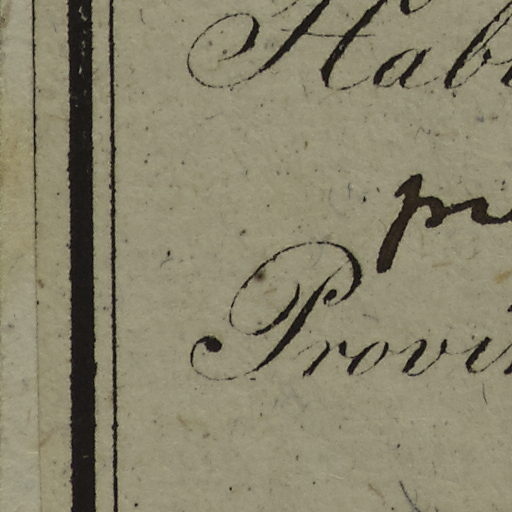 Hab
pr
Provin